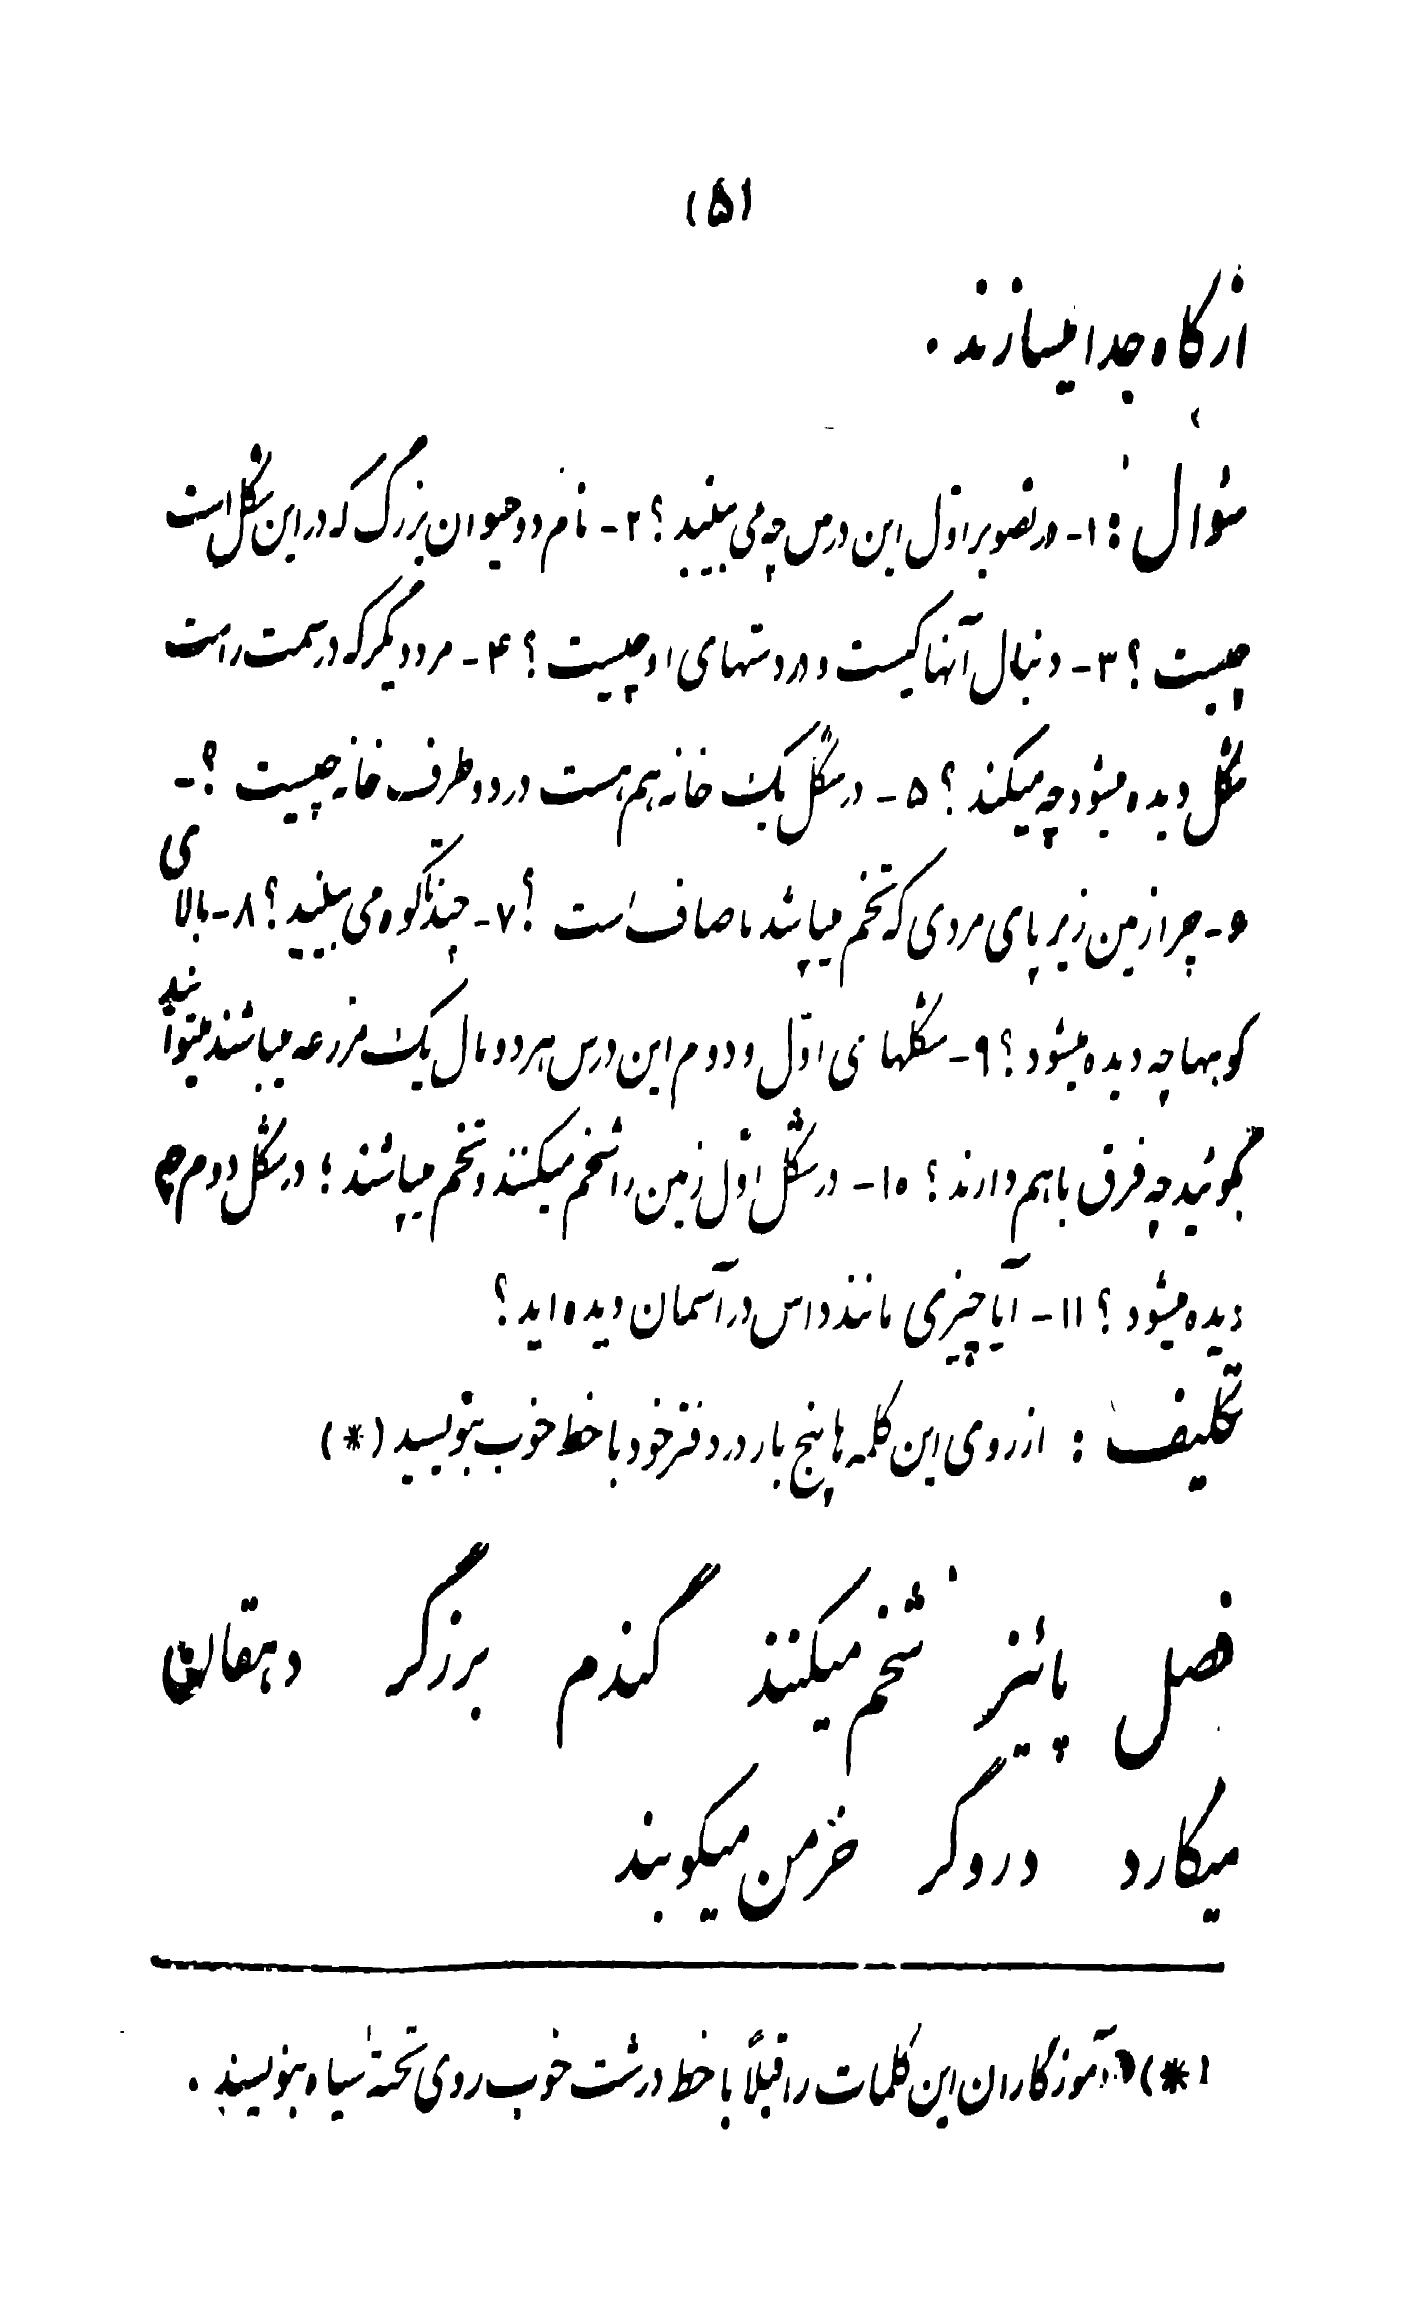 (۵)
از کاه جدا میسازند .
سؤال : ۱- در تصویر اوّل این درس چه می بینید ؟ ۲- نام دو حیوان بزرگ که در این شکل است
چیست ؟ ۳- دنبال آنها کیست و در دستهای او چیست ؟ ۴- مرد دیگر که در سمت راست
شکل دیده میشود چه میکند ؟ ۵- در شکل یک خانه هم هست در دو طرف خانه چیست ؟-
۶- چرا زمین زیر پای مردی که تخم میپاشد ناصاف است ؟ ۷- چند تا کوه می بینید ؟ ۸- بالای
کوهها چه دیده میشود ؟ ۹- شکلهای اوّل و دوم این درس هر دو مال یک مزرعه میباشند میتوانید
بگوئید چه فرق با هم دارند ؟ ۱۰- در شکل اوّل زمین را شخم میکنند و تخم میپاشند ؛ در شکل دوم چه
دیده میشود ؟ ۱۱- آیا چیزی مانند داس در آسمان دیده اید ؟
تکلیف : از روی این کلمه ها پنج بار در دفتر خود با خط خوب بنویسید (*)
فصل پائیز شخم میکنند گندم برزگر دهقان
میکارد دروگر خرمن میکوبند
(*) آموزگاران این کلمات را قبلاً با خط درشت خوب روی تختهٔ سیاه بنویسند .